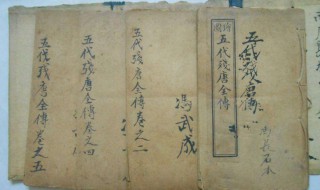 繪圖
五代殘唐全傳
五代殘唐全傳
尚長石本
五代殘唐全傳卷之二
馮武成
五代殘唐全傳卷之四
五代殘唐全傳卷之五